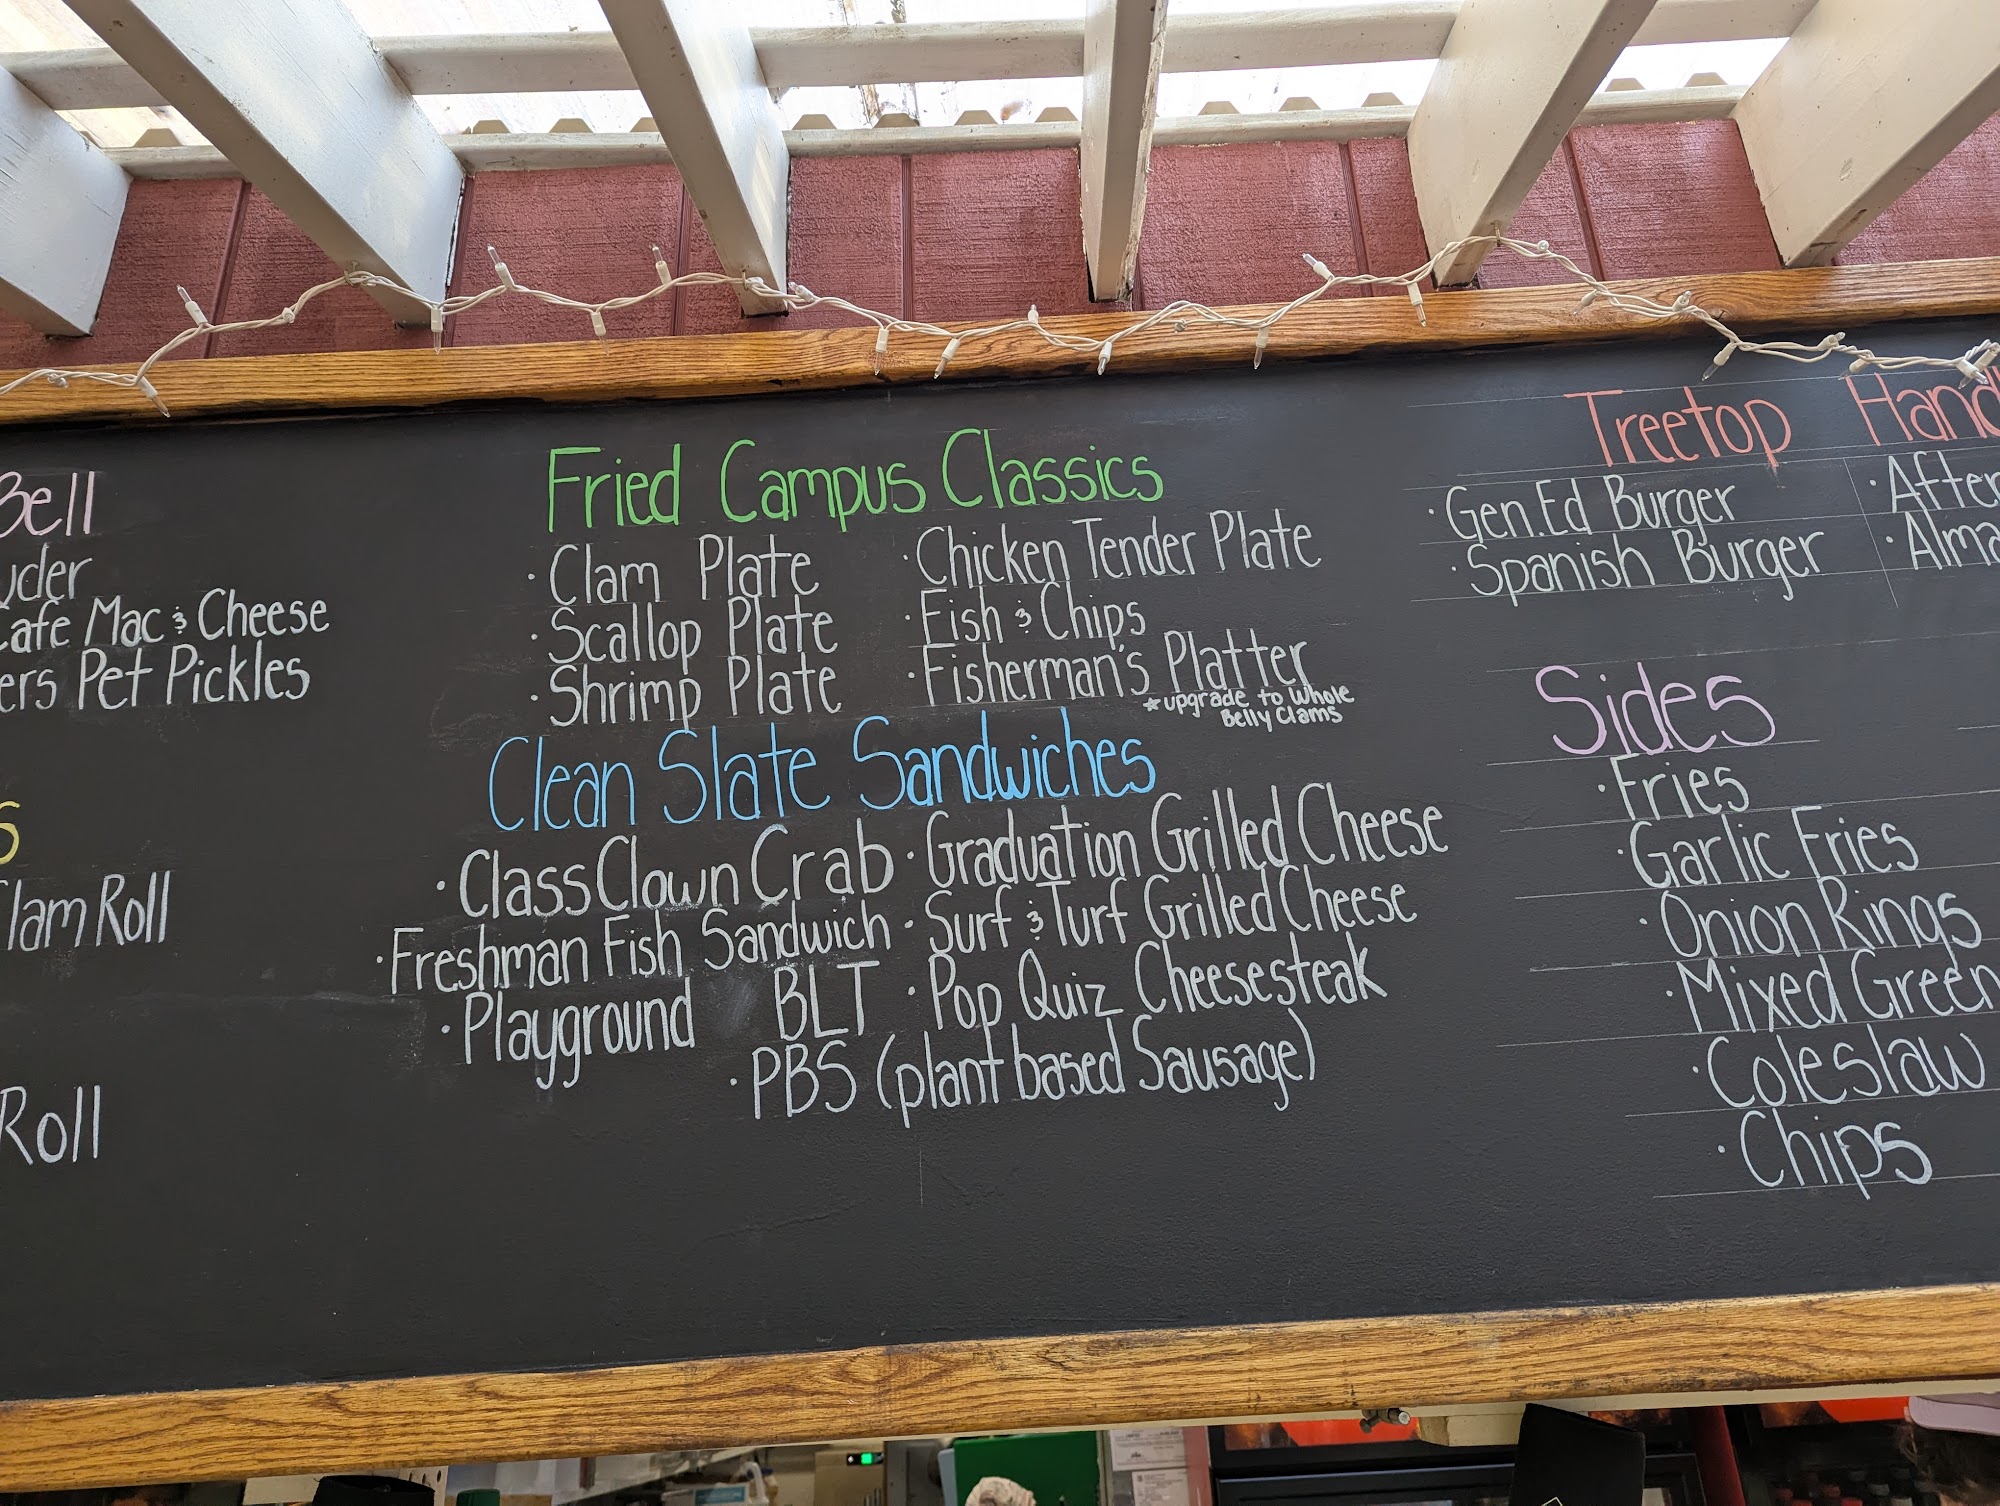 Bell
Cafe Mac & Cheese
Pet Pickles
Clam Roll
Roll
Fried Campus Classics
· Clam Plate
· Scallop Plate
· Shrimp Plate
· Chicken Tender Plate
· Fish & Chips
· Fisherman's Platter
* upgrade to Whole
Belly Clams
Clean Slate Sandwiches
· Class Clown Crab
· Freshman Fish Sandwich
· Playground BLT
· Graduation Grilled Cheese
· Surf & Turf Grilled Cheese
· Pop Quiz Cheesesteak
· PBS (plant based Sausage)
Treetop
· Gen.Ed Burger
· Spanish Burger
Sides
· Fries
· Garlic Fries
· Onion Rings
· Mixed Green
· Coleslaw
· Chips